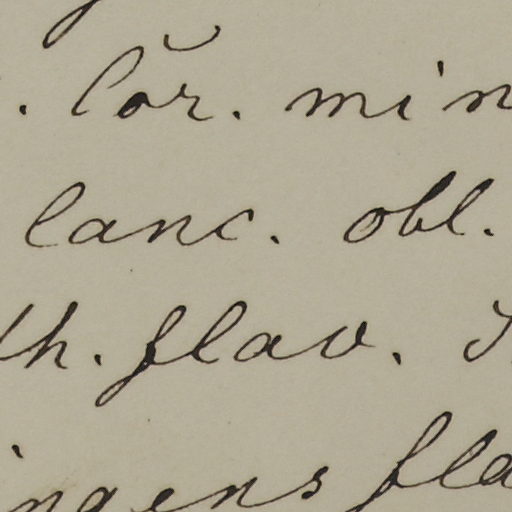 . Cor. min
lanc. obl.
th. flav.
ingens fla